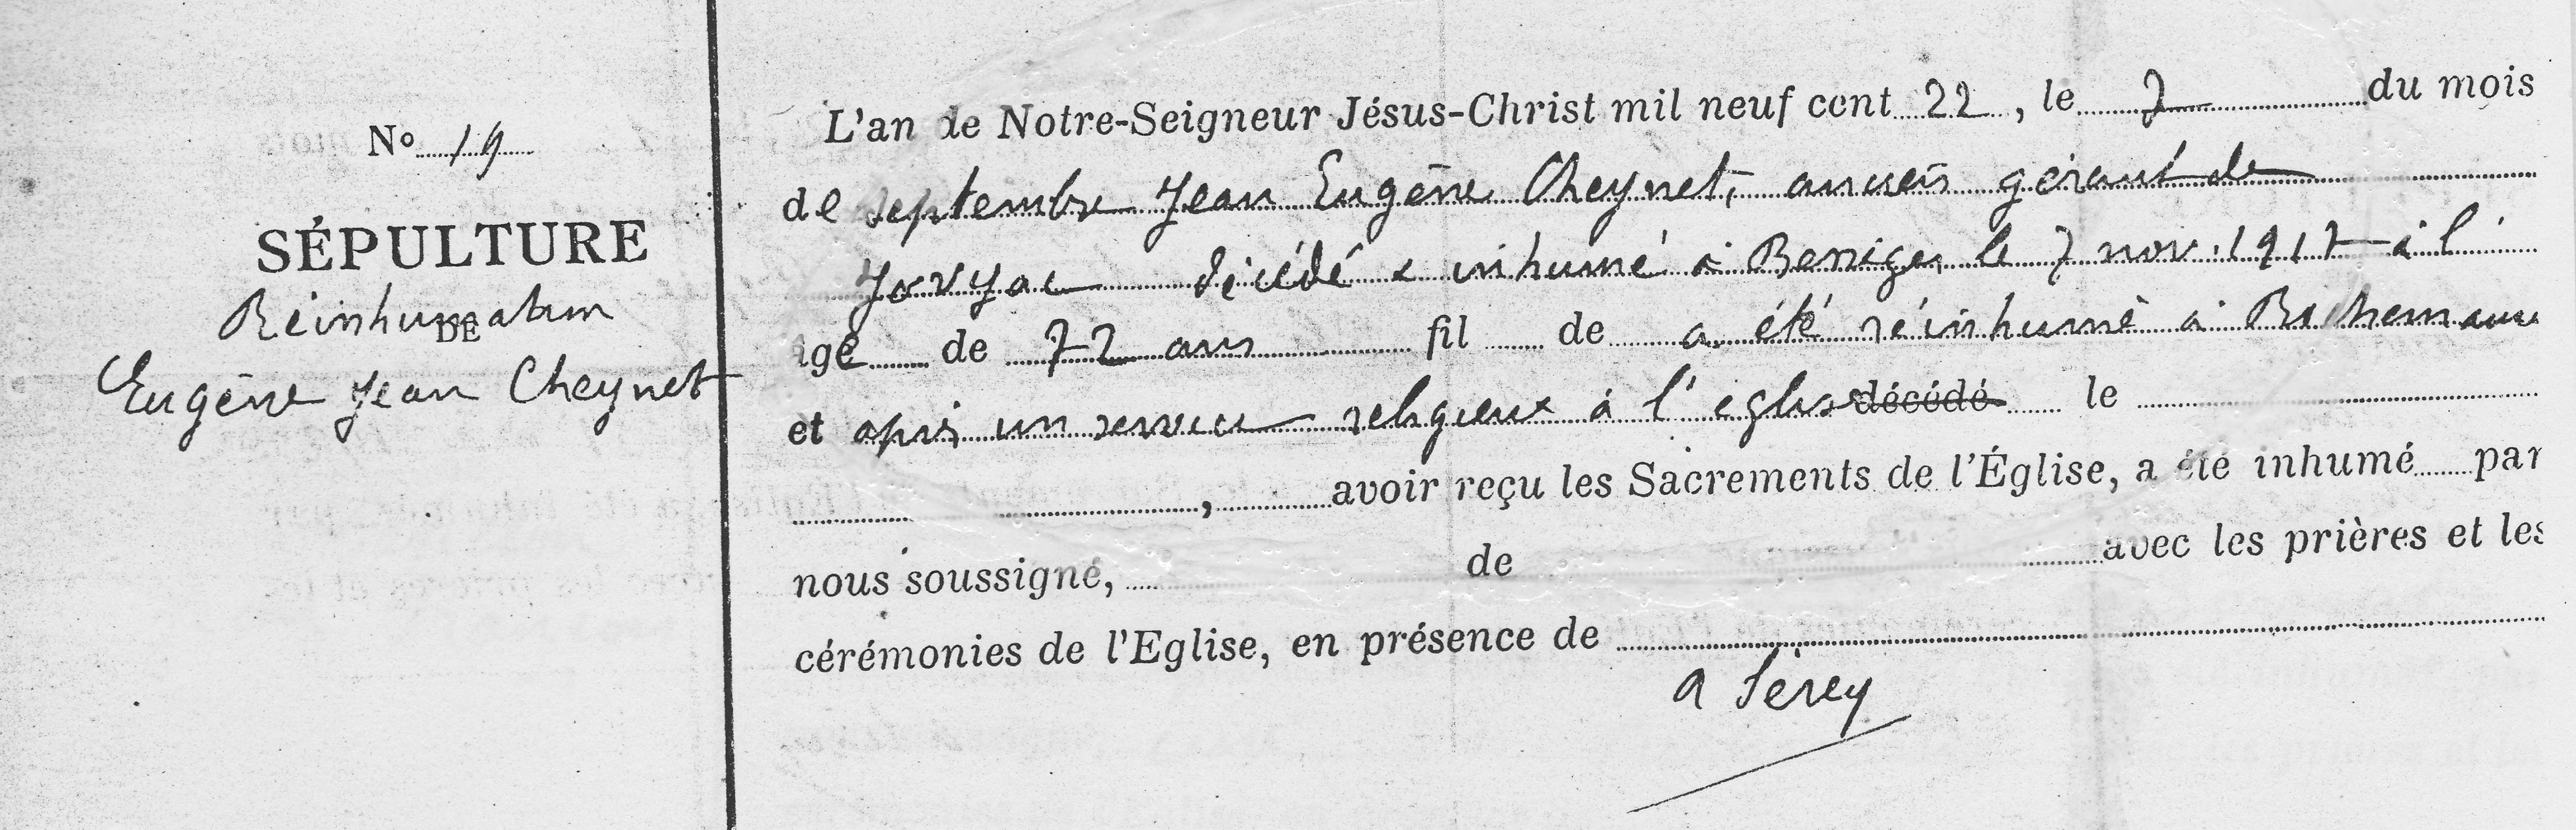 N° 19
SÉPULTURE
Réinhumation
DE
Eugène Jean Cheynet
L'an de Notre-Seigneur Jésus-Christ mil neuf cent 22, le 7 du mois
de septembre Jean Eugène Cheynet, ancien gérant de
décédé & inhumé à le 7 nov. 1917 à l'
âgé de 72 ans fil de a été réinhumé à
et après un service religieux à l'église décédé le
, avoir reçu les Sacrements de l'Église, a été inhumé par
nous soussigné, de avec les prières et les
cérémonies de l'Eglise, en présence de